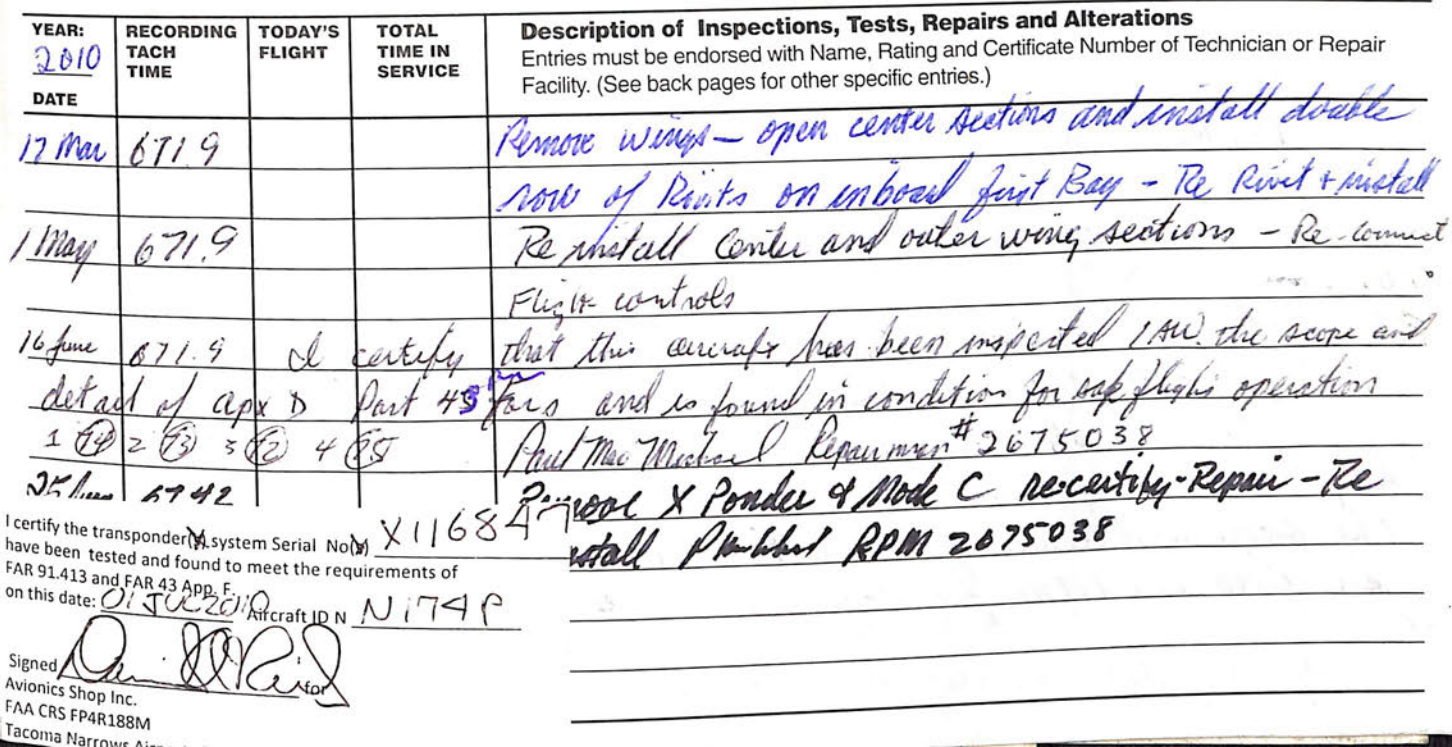 YEAR: RECORDING TODAY'S TOTAL Description of Inspections, Tests, Repairs and Alterations
2010 TACH FLIGHT TIME IN Entries must be endorsed with Name, Rating and Certificate Number of Technician or Repair
TIME SERVICE Facility. (See back pages for other specific entries.)
DATE
17 Mar 671.9 Remove wings – open center sections and install double
row of Rivits on inboard first Bay – Re Rivit + install
1 May 671.9 Re install Center and outer wing sections – Re-connect
Flight controls
16 June 671.9 I certify that this aircraft has been inspected IAW. the scope and
detail of apx D Part 43 Fars and is found in condition for safe flight operation
1 74 2 73 3 72 4 75 Paul MacMichael Repairman # 2675038
25 June 6742 Remove X Ponder & Mode C recertify-Repair-Re
install RPM 2675038
I certify the transponder system Serial No X116847
have been tested and found to meet the requirements of
FAR 91.413 and FAR 43 App. F.
on this date: 01 JUL 2010 Aircraft ID N N174P
Signed for
Avionics Shop Inc.
FAA CRS FP4R188M
Tacoma Narrows